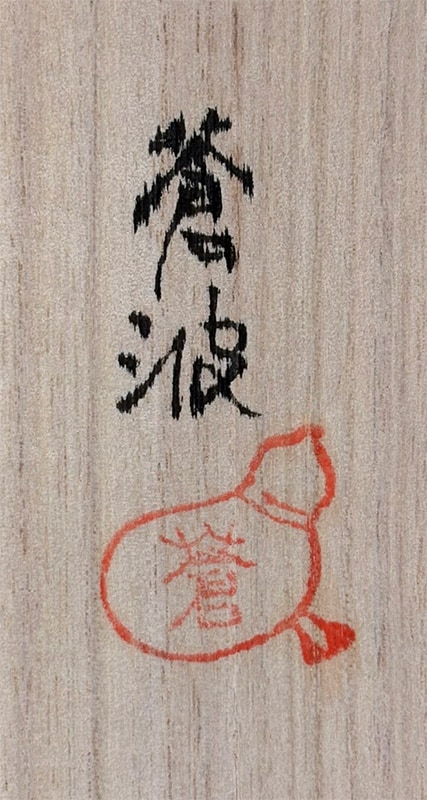 蒼波
蒼